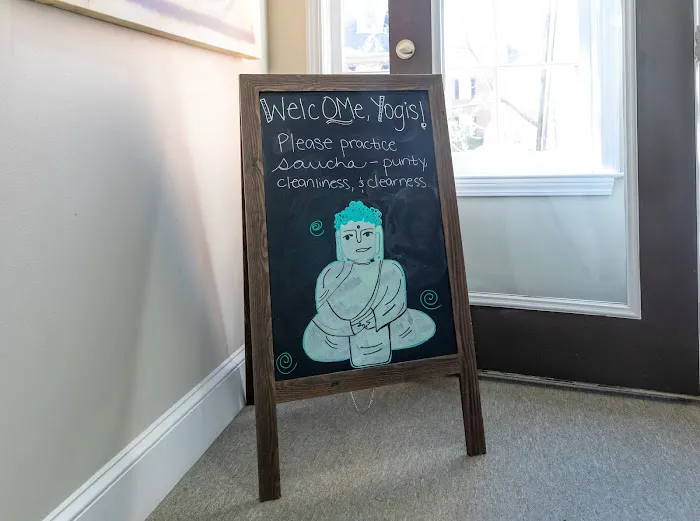 WelcOMe, Yogis!
Please practice
saucha - purity,
cleanliness, & clearness.